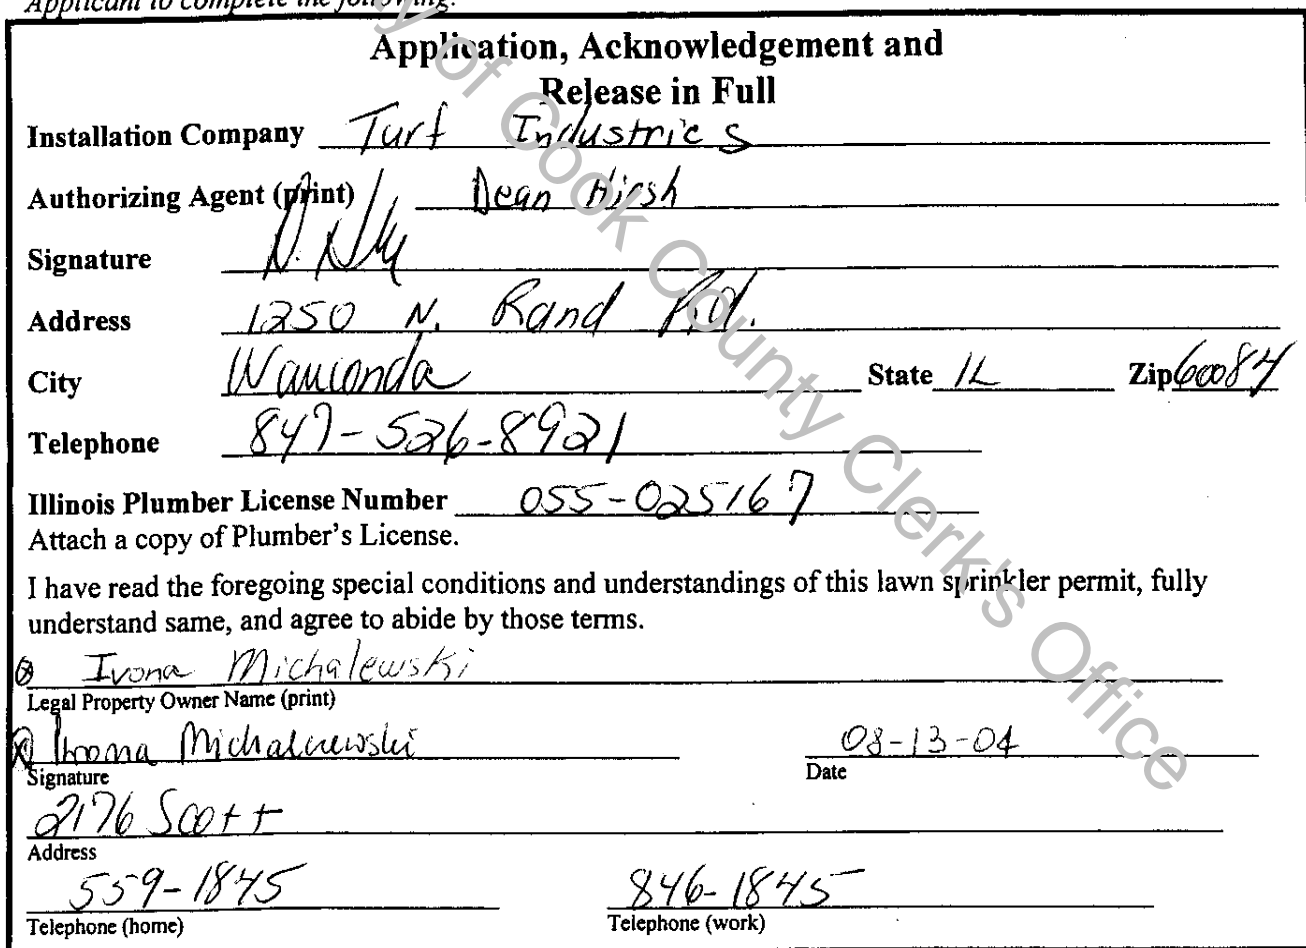 Applicant to complete the following:
Application, Acknowledgement and
Release in Full
Installation Company Turf Industries
Authorizing Agent (print) Dean Hirsh
Signature
Address 1250 N. Rand Rd.
City Wauconda State IL Zip 60084
Telephone 847-526-8921
Illinois Plumber License Number 055-025167
Attach a copy of Plumber's License.
I have read the foregoing special conditions and understandings of this lawn sprinkler permit, fully
understand same, and agree to abide by those terms.
Ivona Michalewski
Legal Property Owner Name (print)
Michalewski 08-13-04
Signature Date
2176 Scott
Address
559-1845 846-1845
Telephone (home) Telephone (work)
of Cook County Clerk's Office